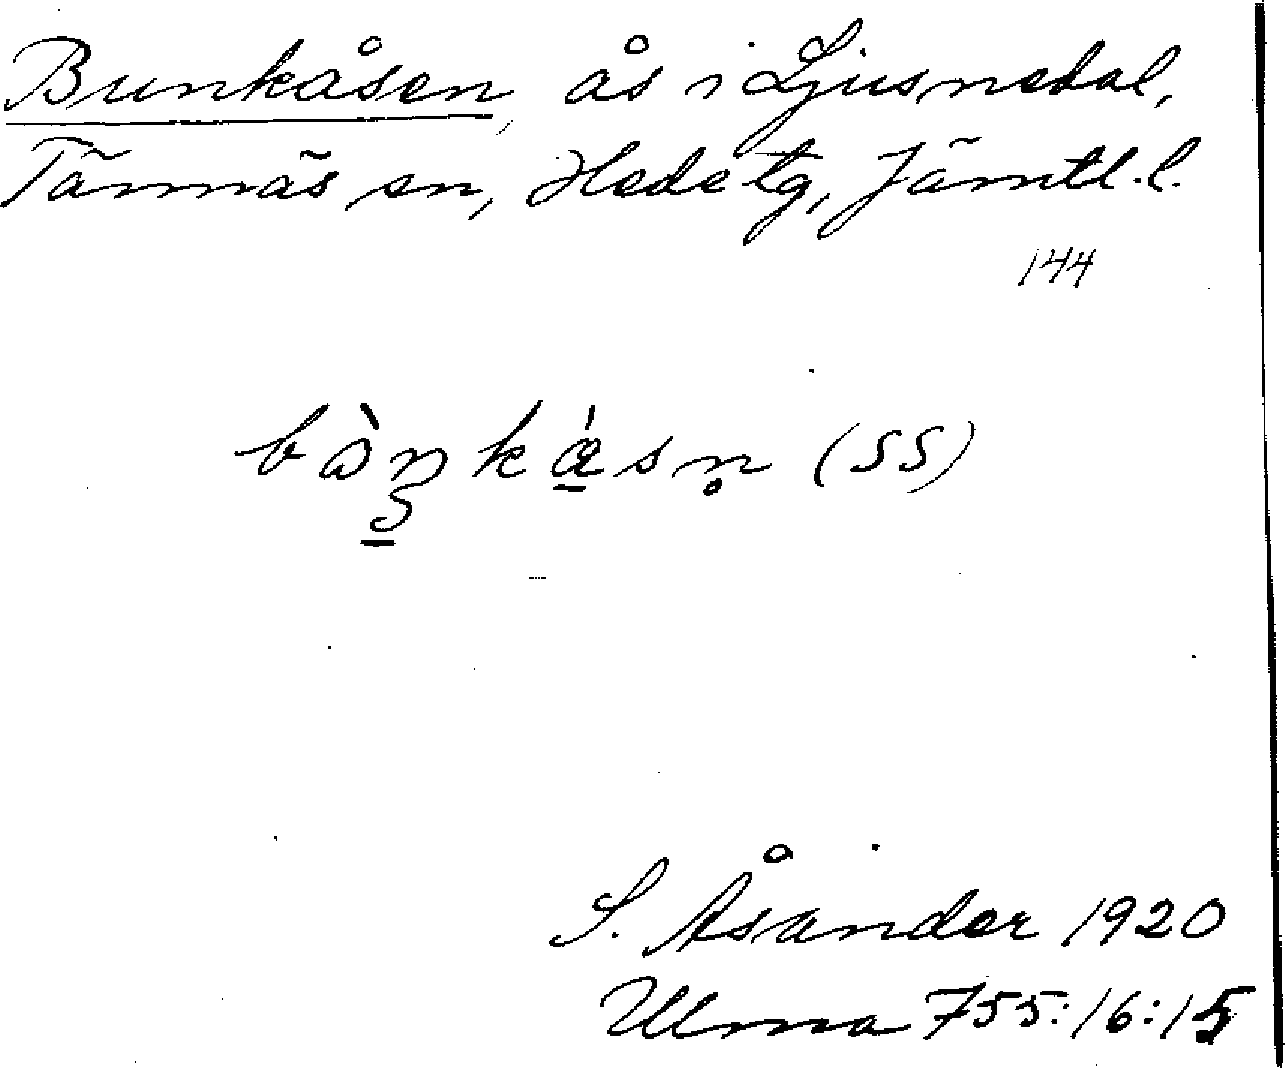 Bunkåsen, ås i Ljusnedal,
Tännäs sn, Hede tg, Jämtl.l.
144
(SS)
S. Åsander 1920
Ulma 755:16:15